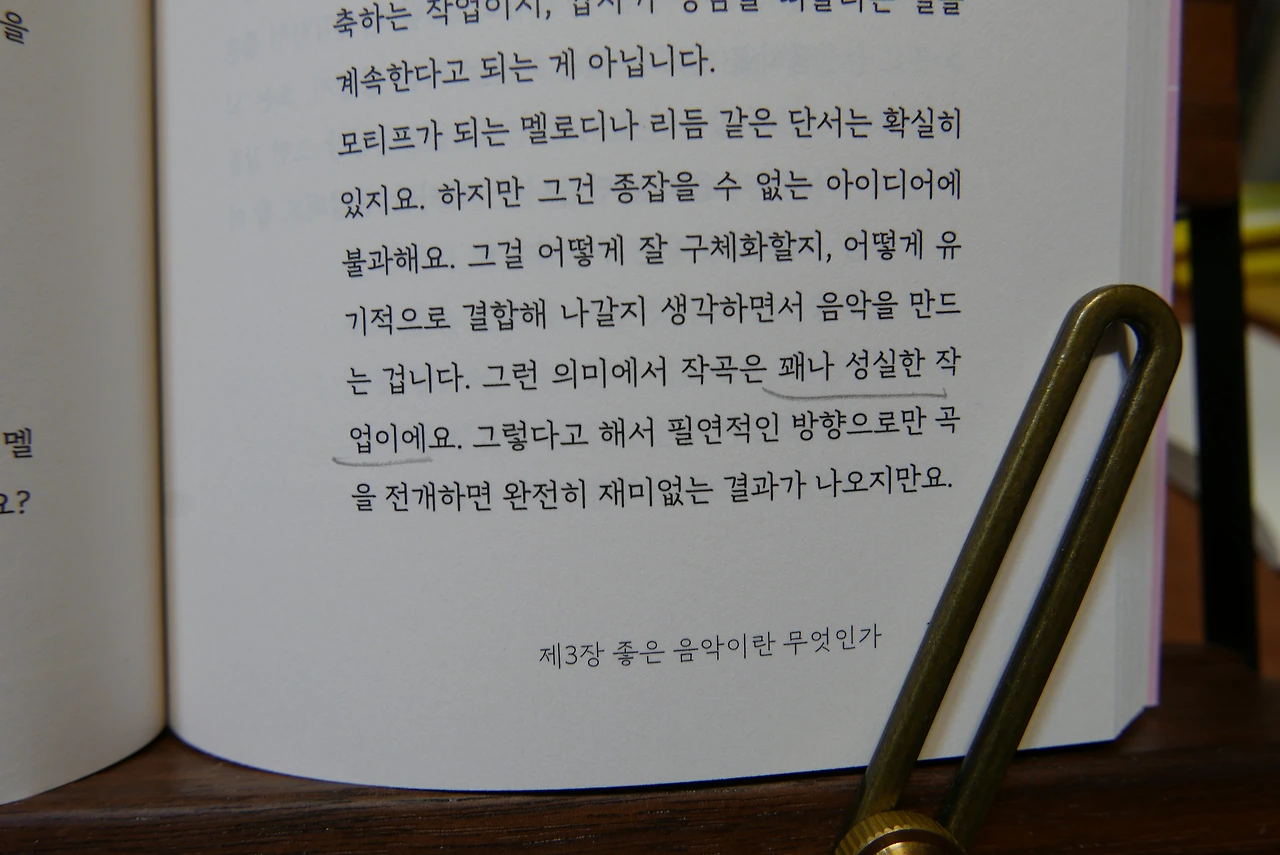 을
멜
요?
축하는 작업이지, 갑자기 영감을 떠올리는 일을
계속한다고 되는 게 아닙니다.
모티프가 되는 멜로디나 리듬 같은 단서는 확실히
있지요. 하지만 그건 종잡을 수 없는 아이디어에
불과해요. 그걸 어떻게 잘 구체화할지, 어떻게 유
기적으로 결합해 나갈지 생각하면서 음악을 만드
는 겁니다. 그런 의미에서 작곡은 꽤나 성실한 작
업이에요. 그렇다고 해서 필연적인 방향으로만 곡
을 전개하면 완전히 재미없는 결과가 나오지만요.
제3장 좋은 음악이란 무엇인가